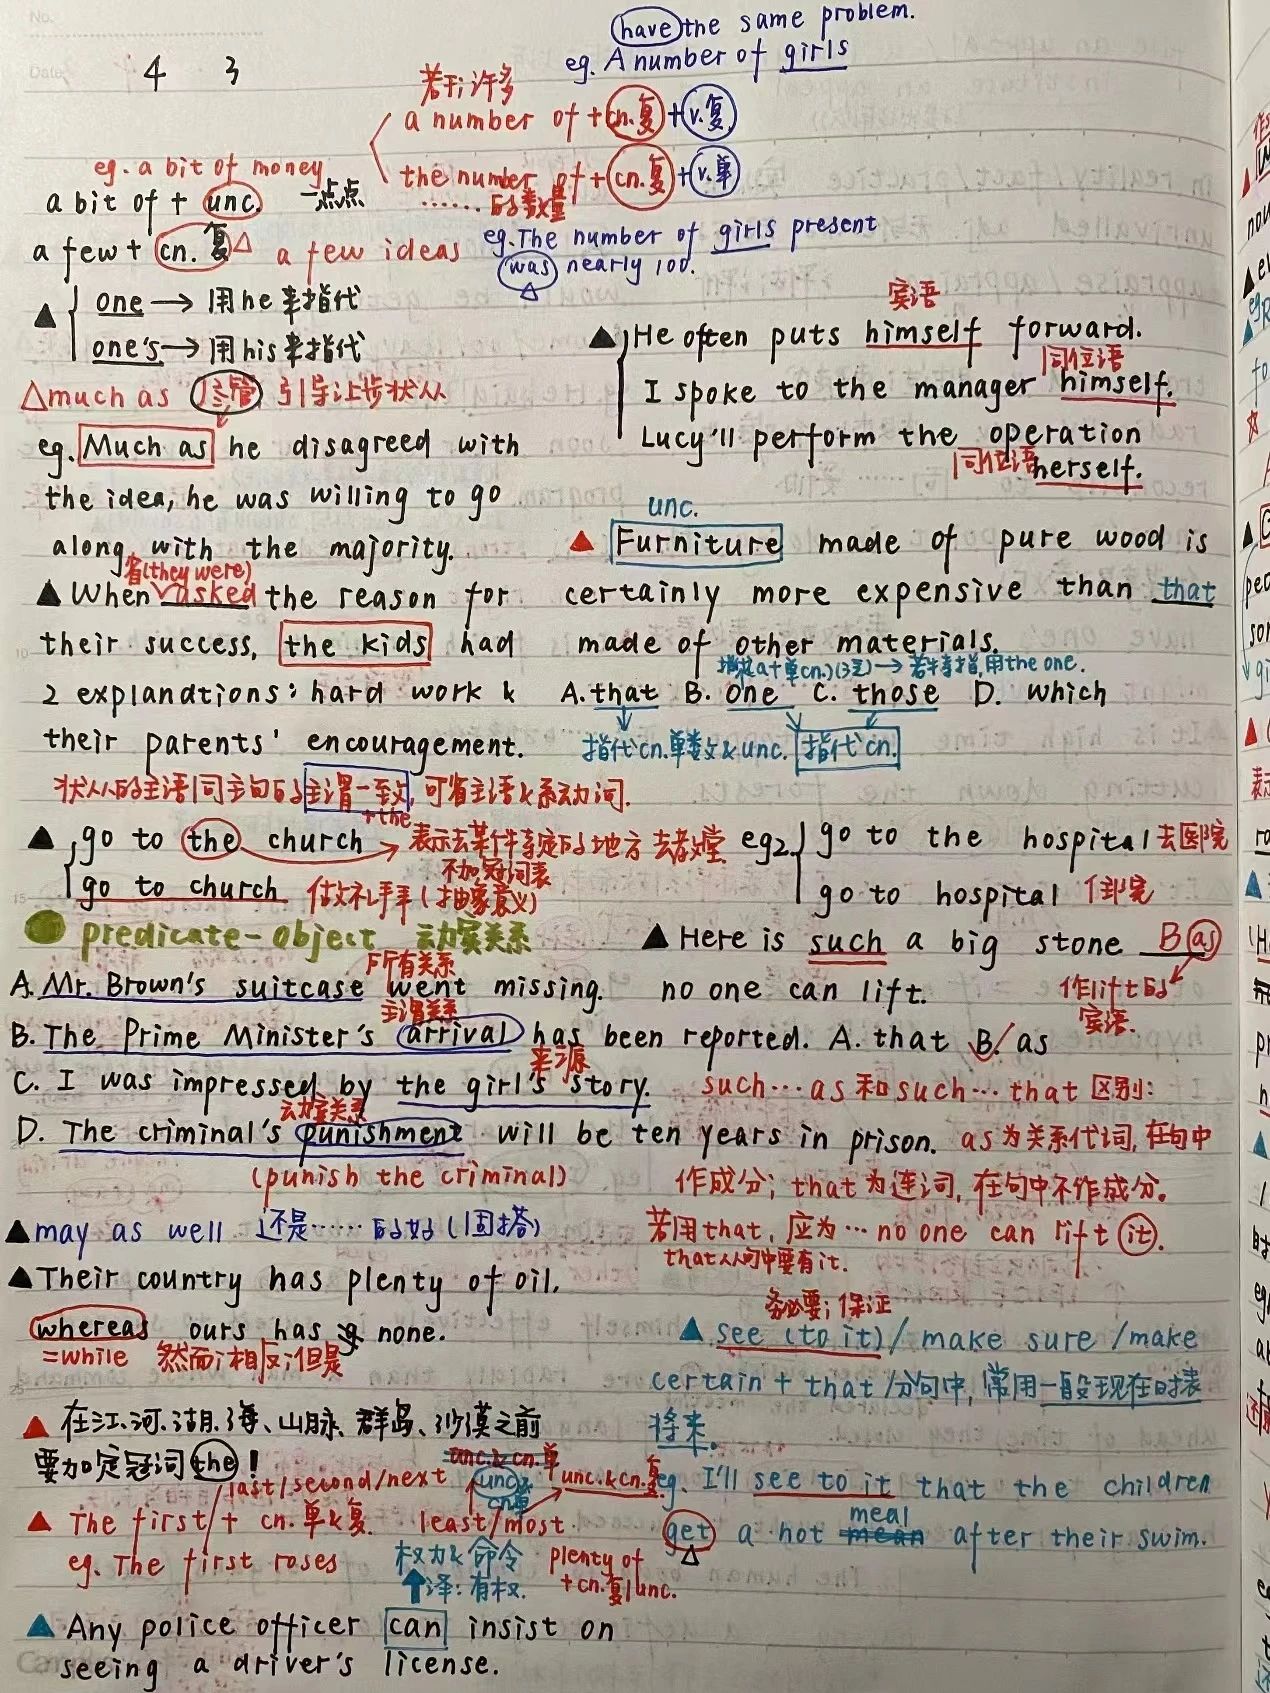 have the same problem.
eg. A number of girls
4 3
若干；许多
a number of + cn.复 + v.复
the number of + cn.复 + v.单
……的数量
eg. The number of girls present
was nearly 100.
eg. a bit of money
a bit of + unc. 一点点
a few + cn.复 a few ideas
one → 用he来指代
one's → 用his来指代
much as 尽管 引导让步状从
eg. Much as he disagreed with
the idea, he was willing to go
along with the majority.
省(they were)
When asked the reason for
their success, the kids had
2 explanations: hard work &
their parents' encouragement.
状从的主语同主句的主谓一致，可省主语&系动词.
宾语
He often puts himself forward.
同位语
I spoke to the manager himself.
Lucy'll perform the operation
同位语 herself.
unc.
Furniture made of pure wood is
certainly more expensive than that
made of other materials.
→ 若特指,用the one.
A. that B. one C. those D. which
指代cn.单数&unc. 指代cn.
+the
go to the church → 表示去某件特定的地方 去教堂
不加冠词表
go to church 做礼拜(抽象意义)
eg2 go to the hospital 去医院
go to hospital 住院
predicate-object 动宾关系
所有关系
A. Mr. Brown's suitcase went missing.
主谓关系
B. The Prime Minister's arrival has been reported.
来源
C. I was impressed by the girl's story.
动宾关系
D. The criminal's punishment will be ten years in prison.
(punish the criminal)
Here is such a big stone B as
no one can lift.
作lift的
宾语.
A. that B. as
such…as和such…that区别:
as为关系代词,在句中
作成分; that为连词,在句中不作成分。
若用that, 应为…no one can lift it.
that从句中要有it.
may as well 还是……的好(固搭)
Their country has plenty of oil,
whereas ours has none.
=while 然而；相反；但是
务必要；保证
see (to it) / make sure / make
certain + that /分句中,常用一般现在时表
将来.
eg. I'll see to it that the children
get a hot mean meal after their swim.
在江、河、湖、海、山脉、群岛、沙漠之前
要加定冠词the!
last/second/next
The first/ + cn.单&复.
eg. The first roses
unc.&cn.单
unc.&
cn.单
unc.&cn.复
least/most.
plenty of
+cn.复/unc.
权力&命令
译:有权.
Any police officer can insist on
seeing a driver's license.